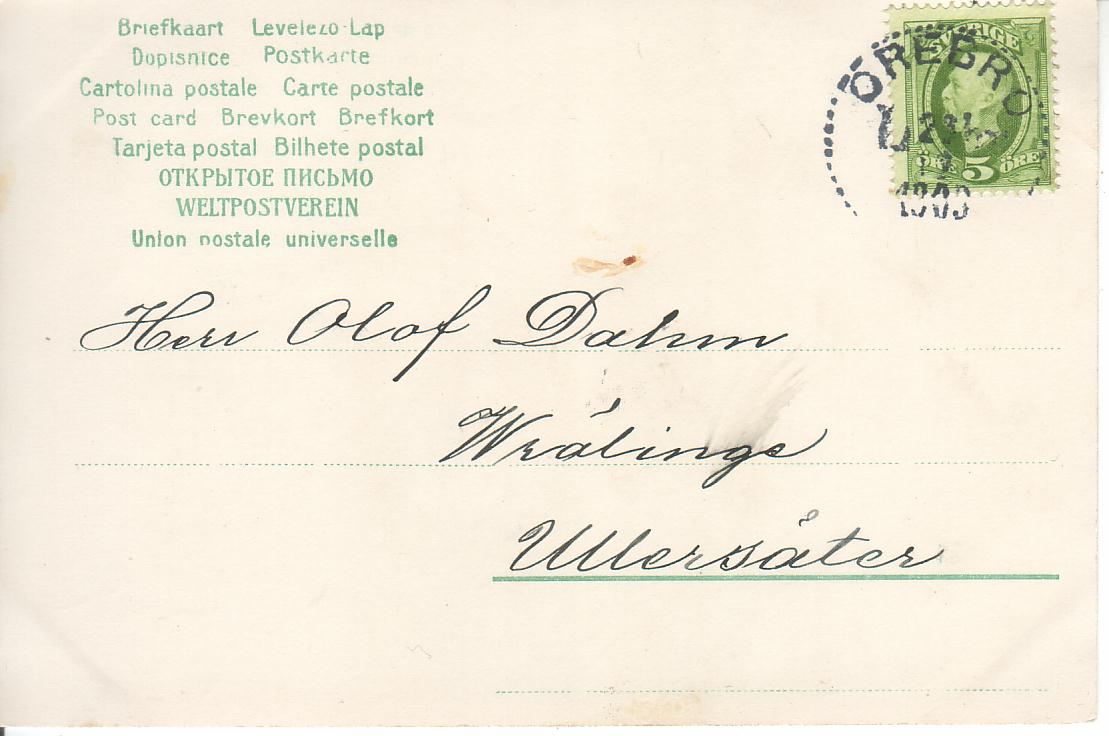 Briefkaart Levelezo-Lap
Dopisnice Postkarte
Cartolina postale Carte postale
Post card Brevkort Brefkort
Tarjeta postal Bilhete postal
ОТКРЫТОЕ ПИСЬМО
WELTPOSTVEREIN
Union postale universelle
SVERIGE
ÖRE 5 ÖRE
ÖREBRO
Herr Olof Dahm
Wrälinge
Ullersäter